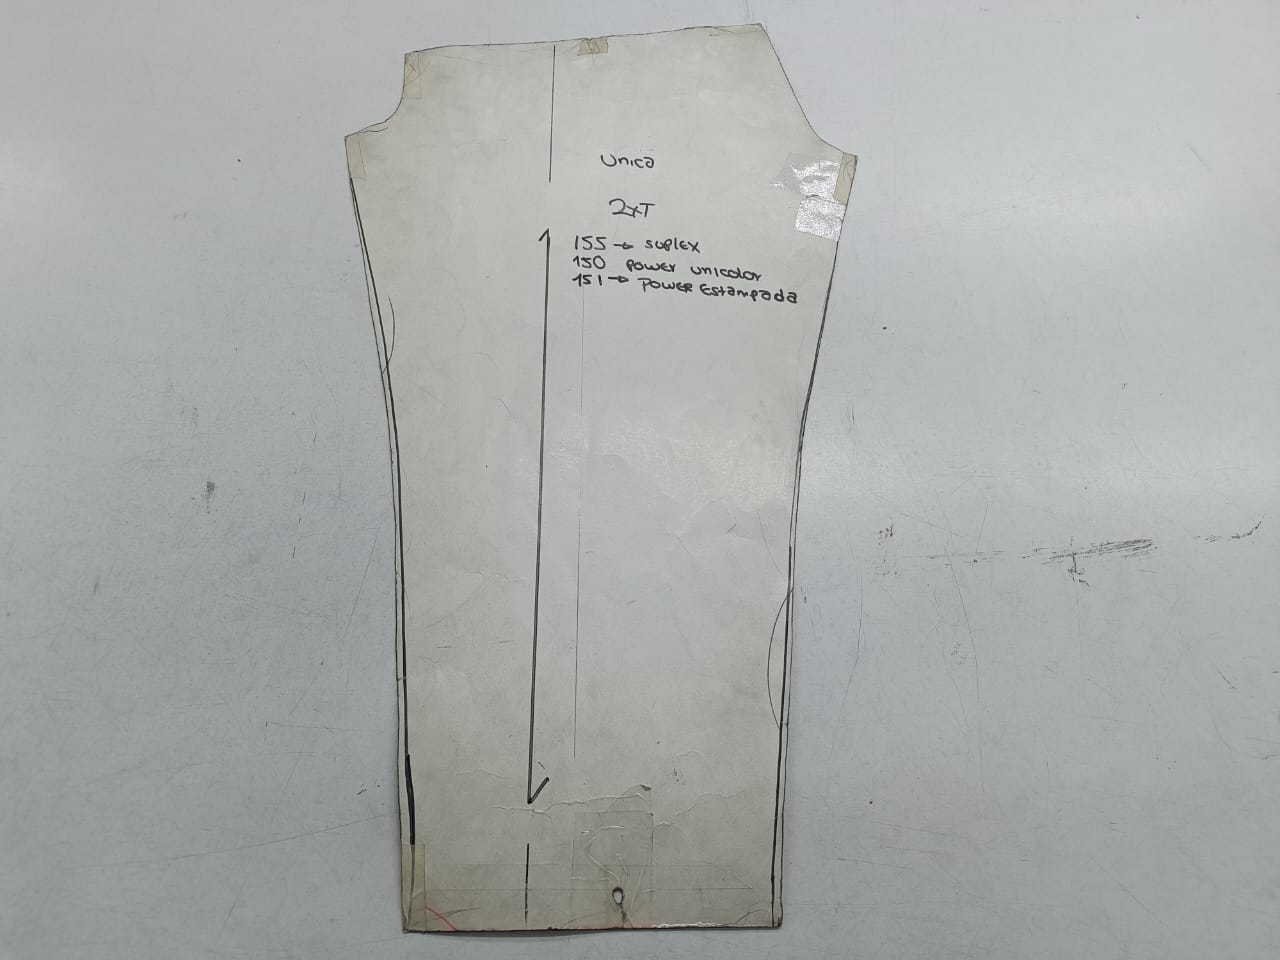 Unica
2xT
155 → suplex
150 power unicolor
151 → Power Estampada